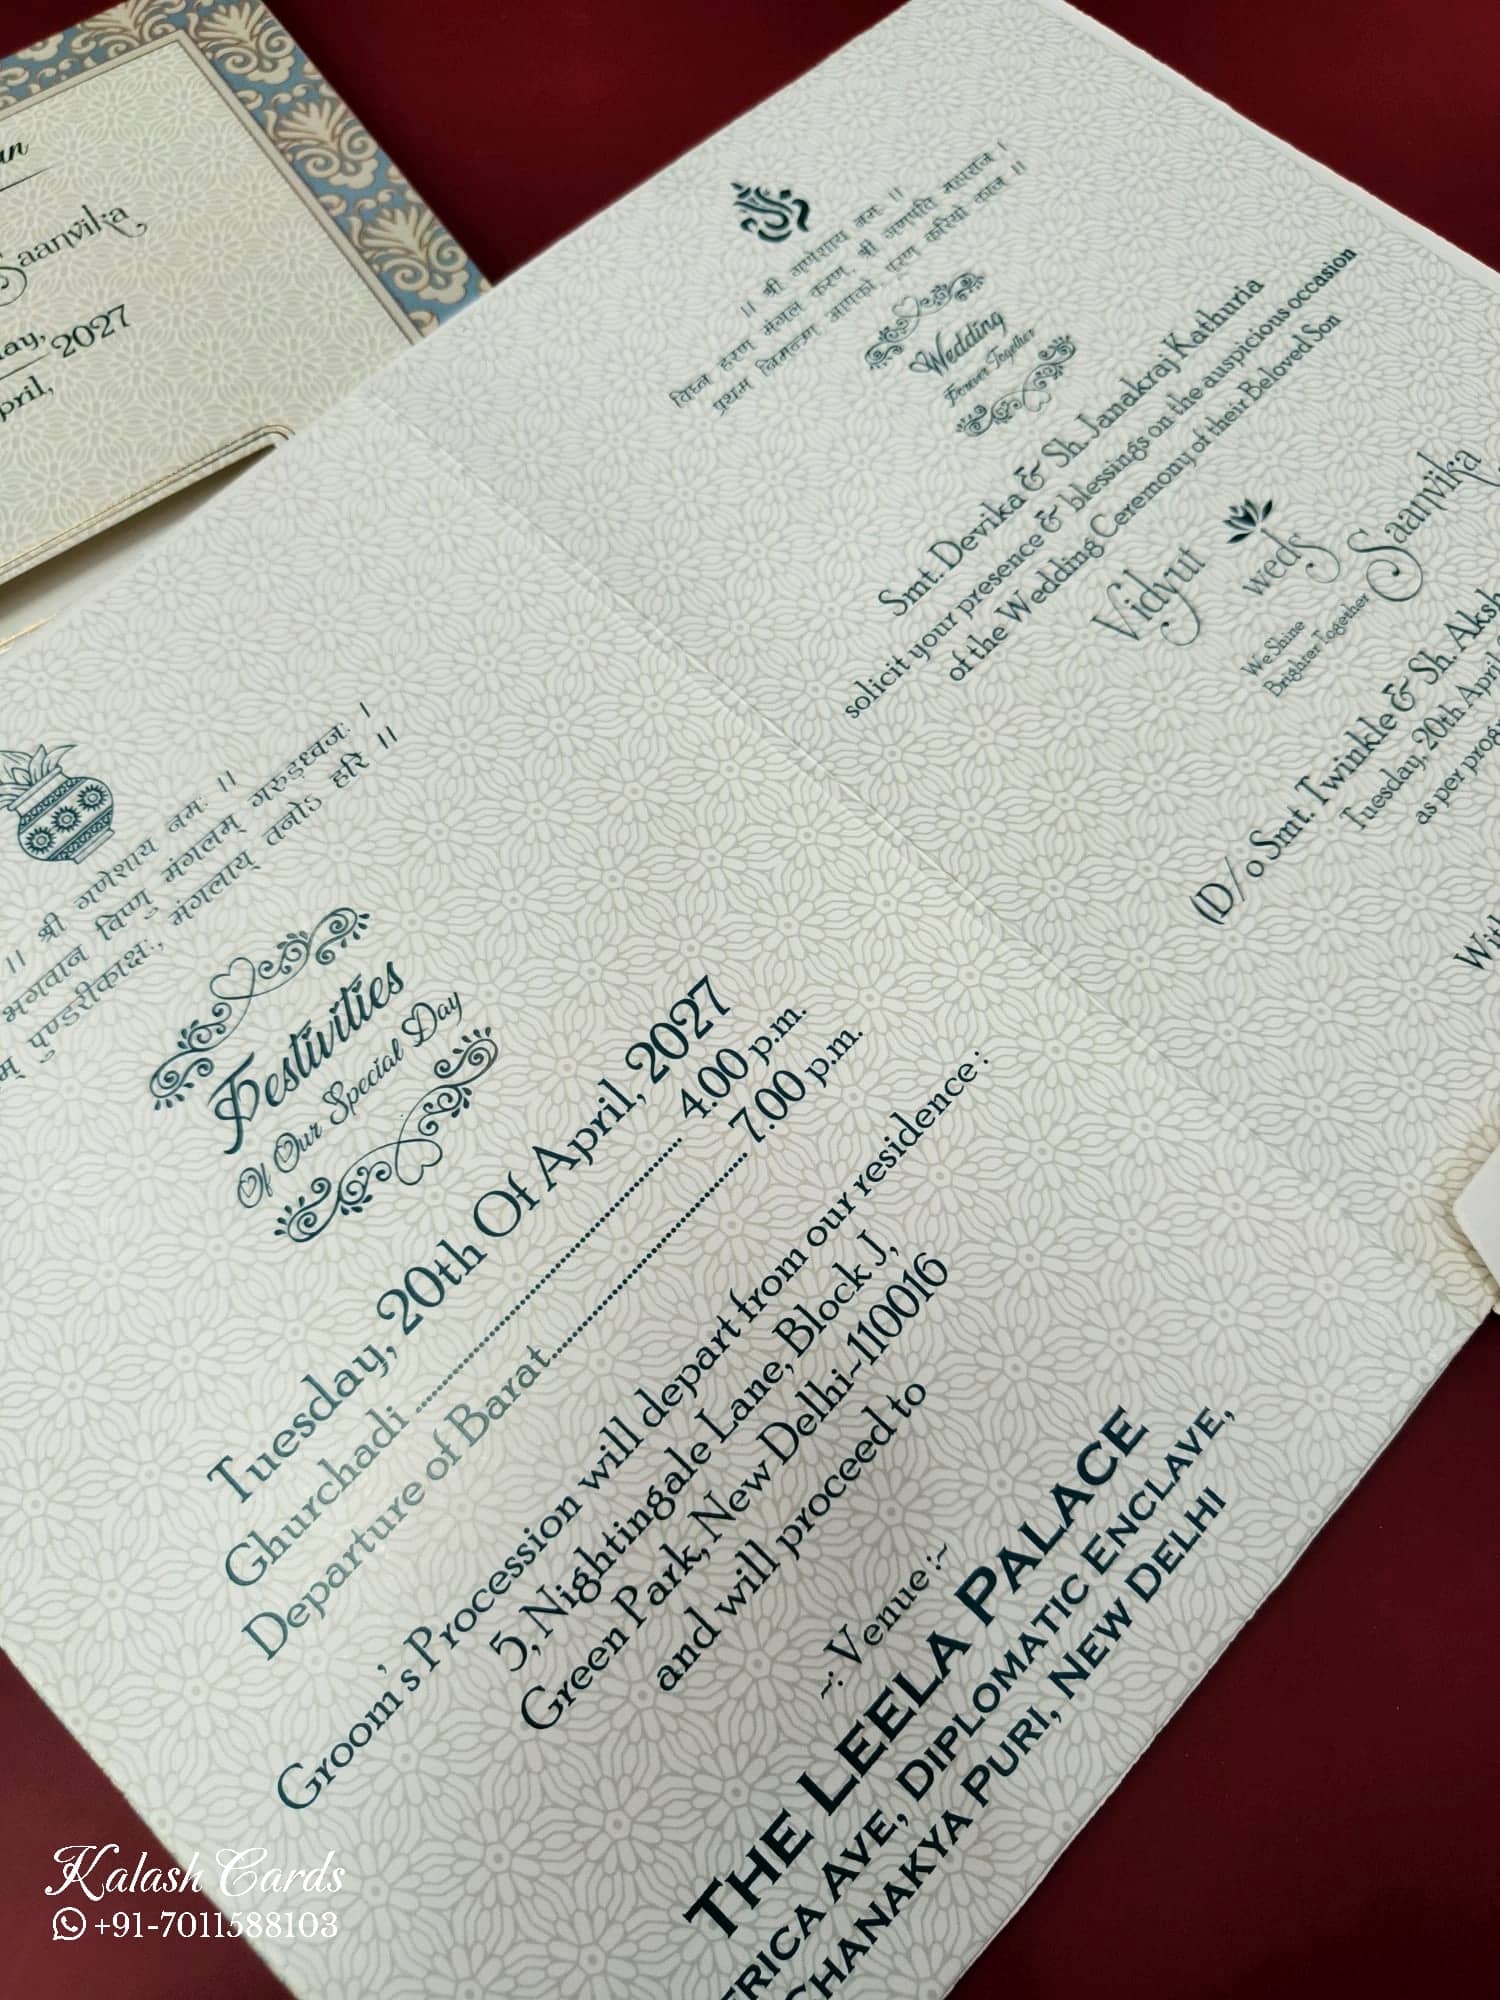 Saanvika
2027
॥ श्री गणेशाय नमः ॥
विघ्न हरण मंगल करण, श्री गणपति महाराज ।
प्रथम निमन्त्रण आपको, पूरण करियो काज ॥
Wedding
Forever Together
Smt. Devika & Sh. Janakraj Kathuria
solicit your presence & blessings on the auspicious occasion
of the Wedding Ceremony of their Beloved Son
Vidyut
weds
Saanvika
We Shine
Brighter Together
(D/o Smt. Twinkle & Sh.
Tuesday, 20th April
as per
॥ श्री गणेशाय नमः ॥
भगवान विष्णु मंगलम् गरुड़ध्वजः ।
पुण्डरीकाक्षः, मंगलाय् तनोऽ हरि ॥
Festivities
Of Our Special Day
Tuesday, 20th Of April, 2027
Ghurchadi ........ 4.00 p.m.
Departure of Barat........ 7.00 p.m.
Groom's Procession will depart from our residence :
5, Nightingale Lane, Block J,
Green Park, New Delhi~110016
and will proceed to
~: Venue :~
THE LEELA PALACE
AVE, DIPLOMATIC ENCLAVE,
PURI, NEW DELHI
Kalash Cards
+91-7011588103